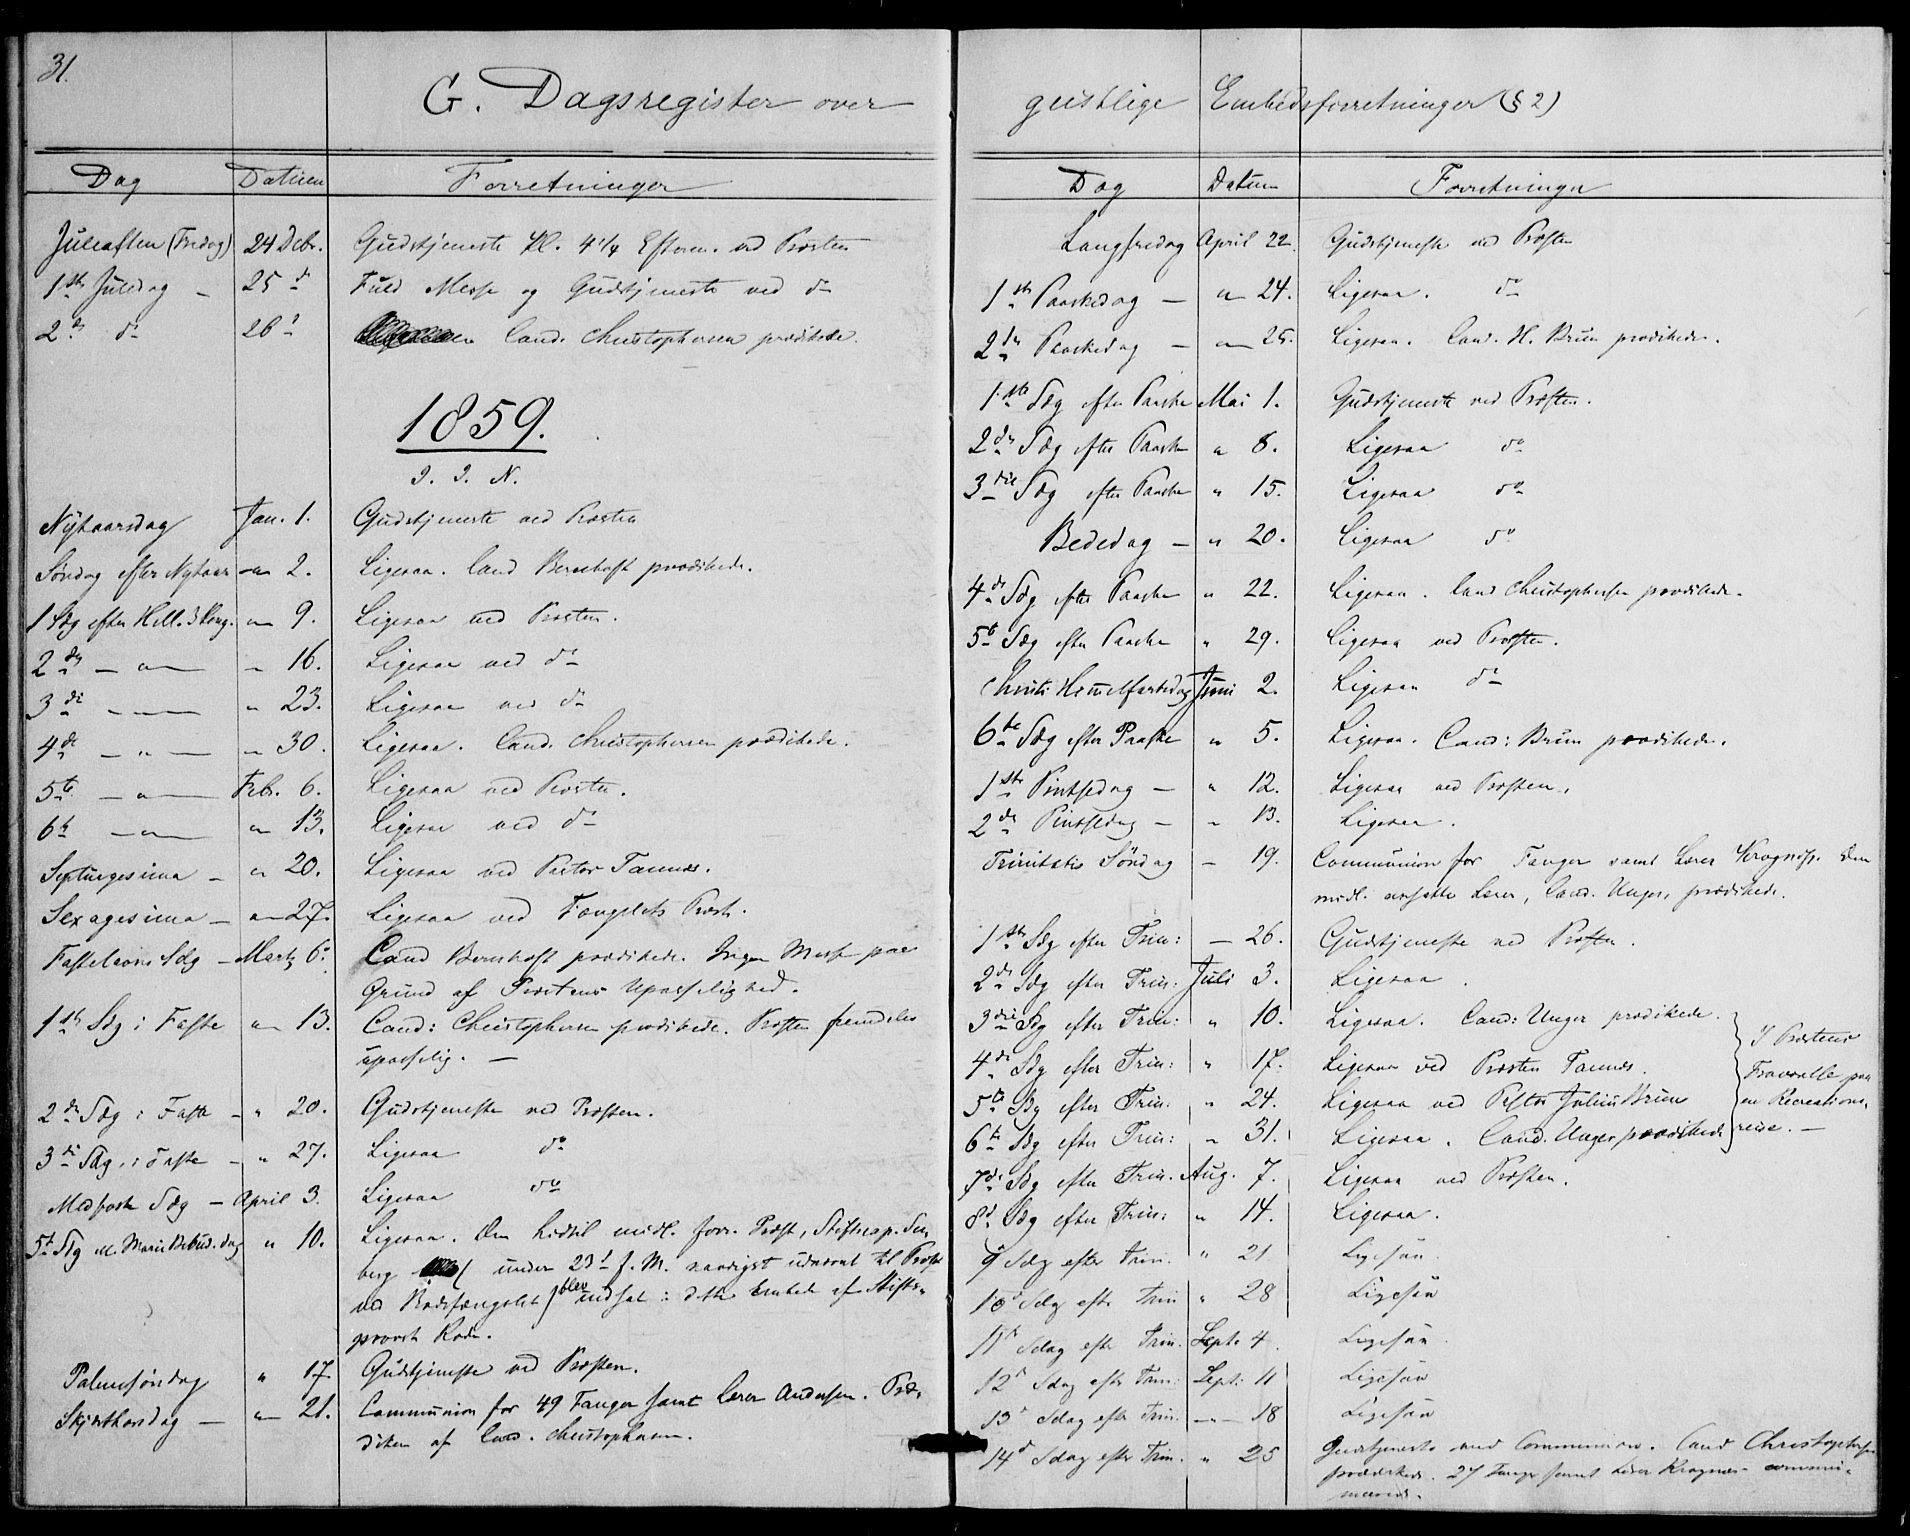 31.
G. Dagsregister over
Dag Datum Forretninger
Juleaften (Fredag) 24 Decbr. Gudstjeneste Kl. 4 1/4 Efterm. ved Præsten
1ste Juledag – 25 do Fuld Messe og Gudstjeneste ved do
2d do 26 do Cand. Christophersen prædikede.
1859.
I. J. N.
Nytaarsdag Jan. 1. Gudstjeneste ved Præsten
Søndag efter Nytaar — „ 2. Ligesaa. Cand Bernhoft prædikede.
1 Sdg efter Hell. 3 Kong. — „ 9. Ligesaa ved Præsten.
2den — „ — „ 16. Ligesaa ved do
3die — „ — „ 23. Ligesaa ved do
4de — „ — „ 30. Ligesaa. Cand. Christophersen prædikede.
5te — „ — Feb. 6. Ligesaa ved Præsten.
6te — „ — „ 13. Ligesaa ved do
Septuagesima – „ 20. Ligesaa ved Pastor Tannæs.
Sexagesima – „ 27. Ligesaa ved Fængslets Præst.
Fastelavns Sdg – Martz 6. Cand Bernhoft prædikede. Ingen Messe paa
Grund af Præstens Upasselighed.
1ste Sdg i Faste „ 13. Cand: Christophersen prædikede. Præsten fremdeles
upasselig. —
2den Sdg i Faste – „ 20. Gudstjeneste ved Præsten.
3die Sdg. i Faste – „ 27. Ligesaa do
Midfaste Sdg – April 3. Ligesaa do
5te Sdg el. Mariæ Bebud. dag „ 10. Ligesaa. Den hidtil midl. forr. Præst, Stiftscap.
berg ( under 23d f. M. naadigst udnævnt til Præst
ved Bodsfængslet) blev indsat i dette Embede af Stifts-
provst Rode.
Palmesøndag „ 17. Gudstjeneste ved Præsten.
Skjærthorsdag — „ 21. Communion for 49 Fanger samt Lærer Andersen. Præ-
diken af Cand. Christophersen.
geistlige Embedsforretninger (§ 2)
Dag Datum Forretninger
Langfredag April 22. Gudstjeneste ved Præsten
1ste Paaskedag — „ 24. Ligesaa. do
2den Paaskedag — „ 25. Ligesaa. Cand. H. Brun prædikede.
1ste Sdg efter Paaske Mai 1. Gudstjeneste ved Præsten.
2den Sdg efter Paaske „ 8. Ligesaa do
3die Sdg efter Paaske „ 15. Ligesaa do
Bededag — „ 20. Ligesaa do
4de Sdg efter Paaske „ 22. Ligesaa. Cand Christophersen prædikede.
5te Sdg efter Paaske „ 29. Ligesaa ved Præsten.
Christi Himmelfartsdag Juni 2. Ligesaa do
6te Sdg efter Paaske „ 5. Ligesaa. Cand: Brun prædikede.
1ste Pintsedag — „ 12. Ligesaa ved Præsten.
2den Pintsedag — „ 13. Ligesaa.
Trinitatis Søndag — 19. Communion for Fanger samt Lærer Kragnæss. Den
midl. ansatte Lærer, Cand. Unger, prædikede.
1ste Sdg efter Trin: — 26. Gudstjeneste ved Præsten.
2den Sdg efter Trin: Juli 3. Ligesaa.
3die Sdg efter Trin: „ 10. Ligesaa. Cand: Unger prædikede.
4de Sdg efter Trin: „ 17. Ligesaa ved Præsten Tannæs.
5te Sdg efter Trin. „ 24. Ligesaa ved Pastor Julius Brun
6te Sdg efter Trin: „ 31. Ligesaa. Cand. Unger prædikede
I Præstens
Fravælle paa
en Recreations-
reise. —
7de Sdg efter Trin. Aug. 7. Ligesaa ved Præsten.
8d Sdg efter Trin: „ 14. Ligesaa.
9 Sdg efter Trin. „ 21 Ligesaa.
10d Sdg efter Trin „ 28 Ligesaa
11te Sdag efter Trin. Sept. 4. Ligesaa.
12d Sdag efter Trin: Sept: 11 Ligesaa
13d Sdag efter Trin. — „ — 18 Ligesaa
14d Sdag efter Trin. „ 25 Gudstjeneste med Communion. Cand Christophersen
prædikede. 27 Fanger samt Lærer Kragnæs communi-